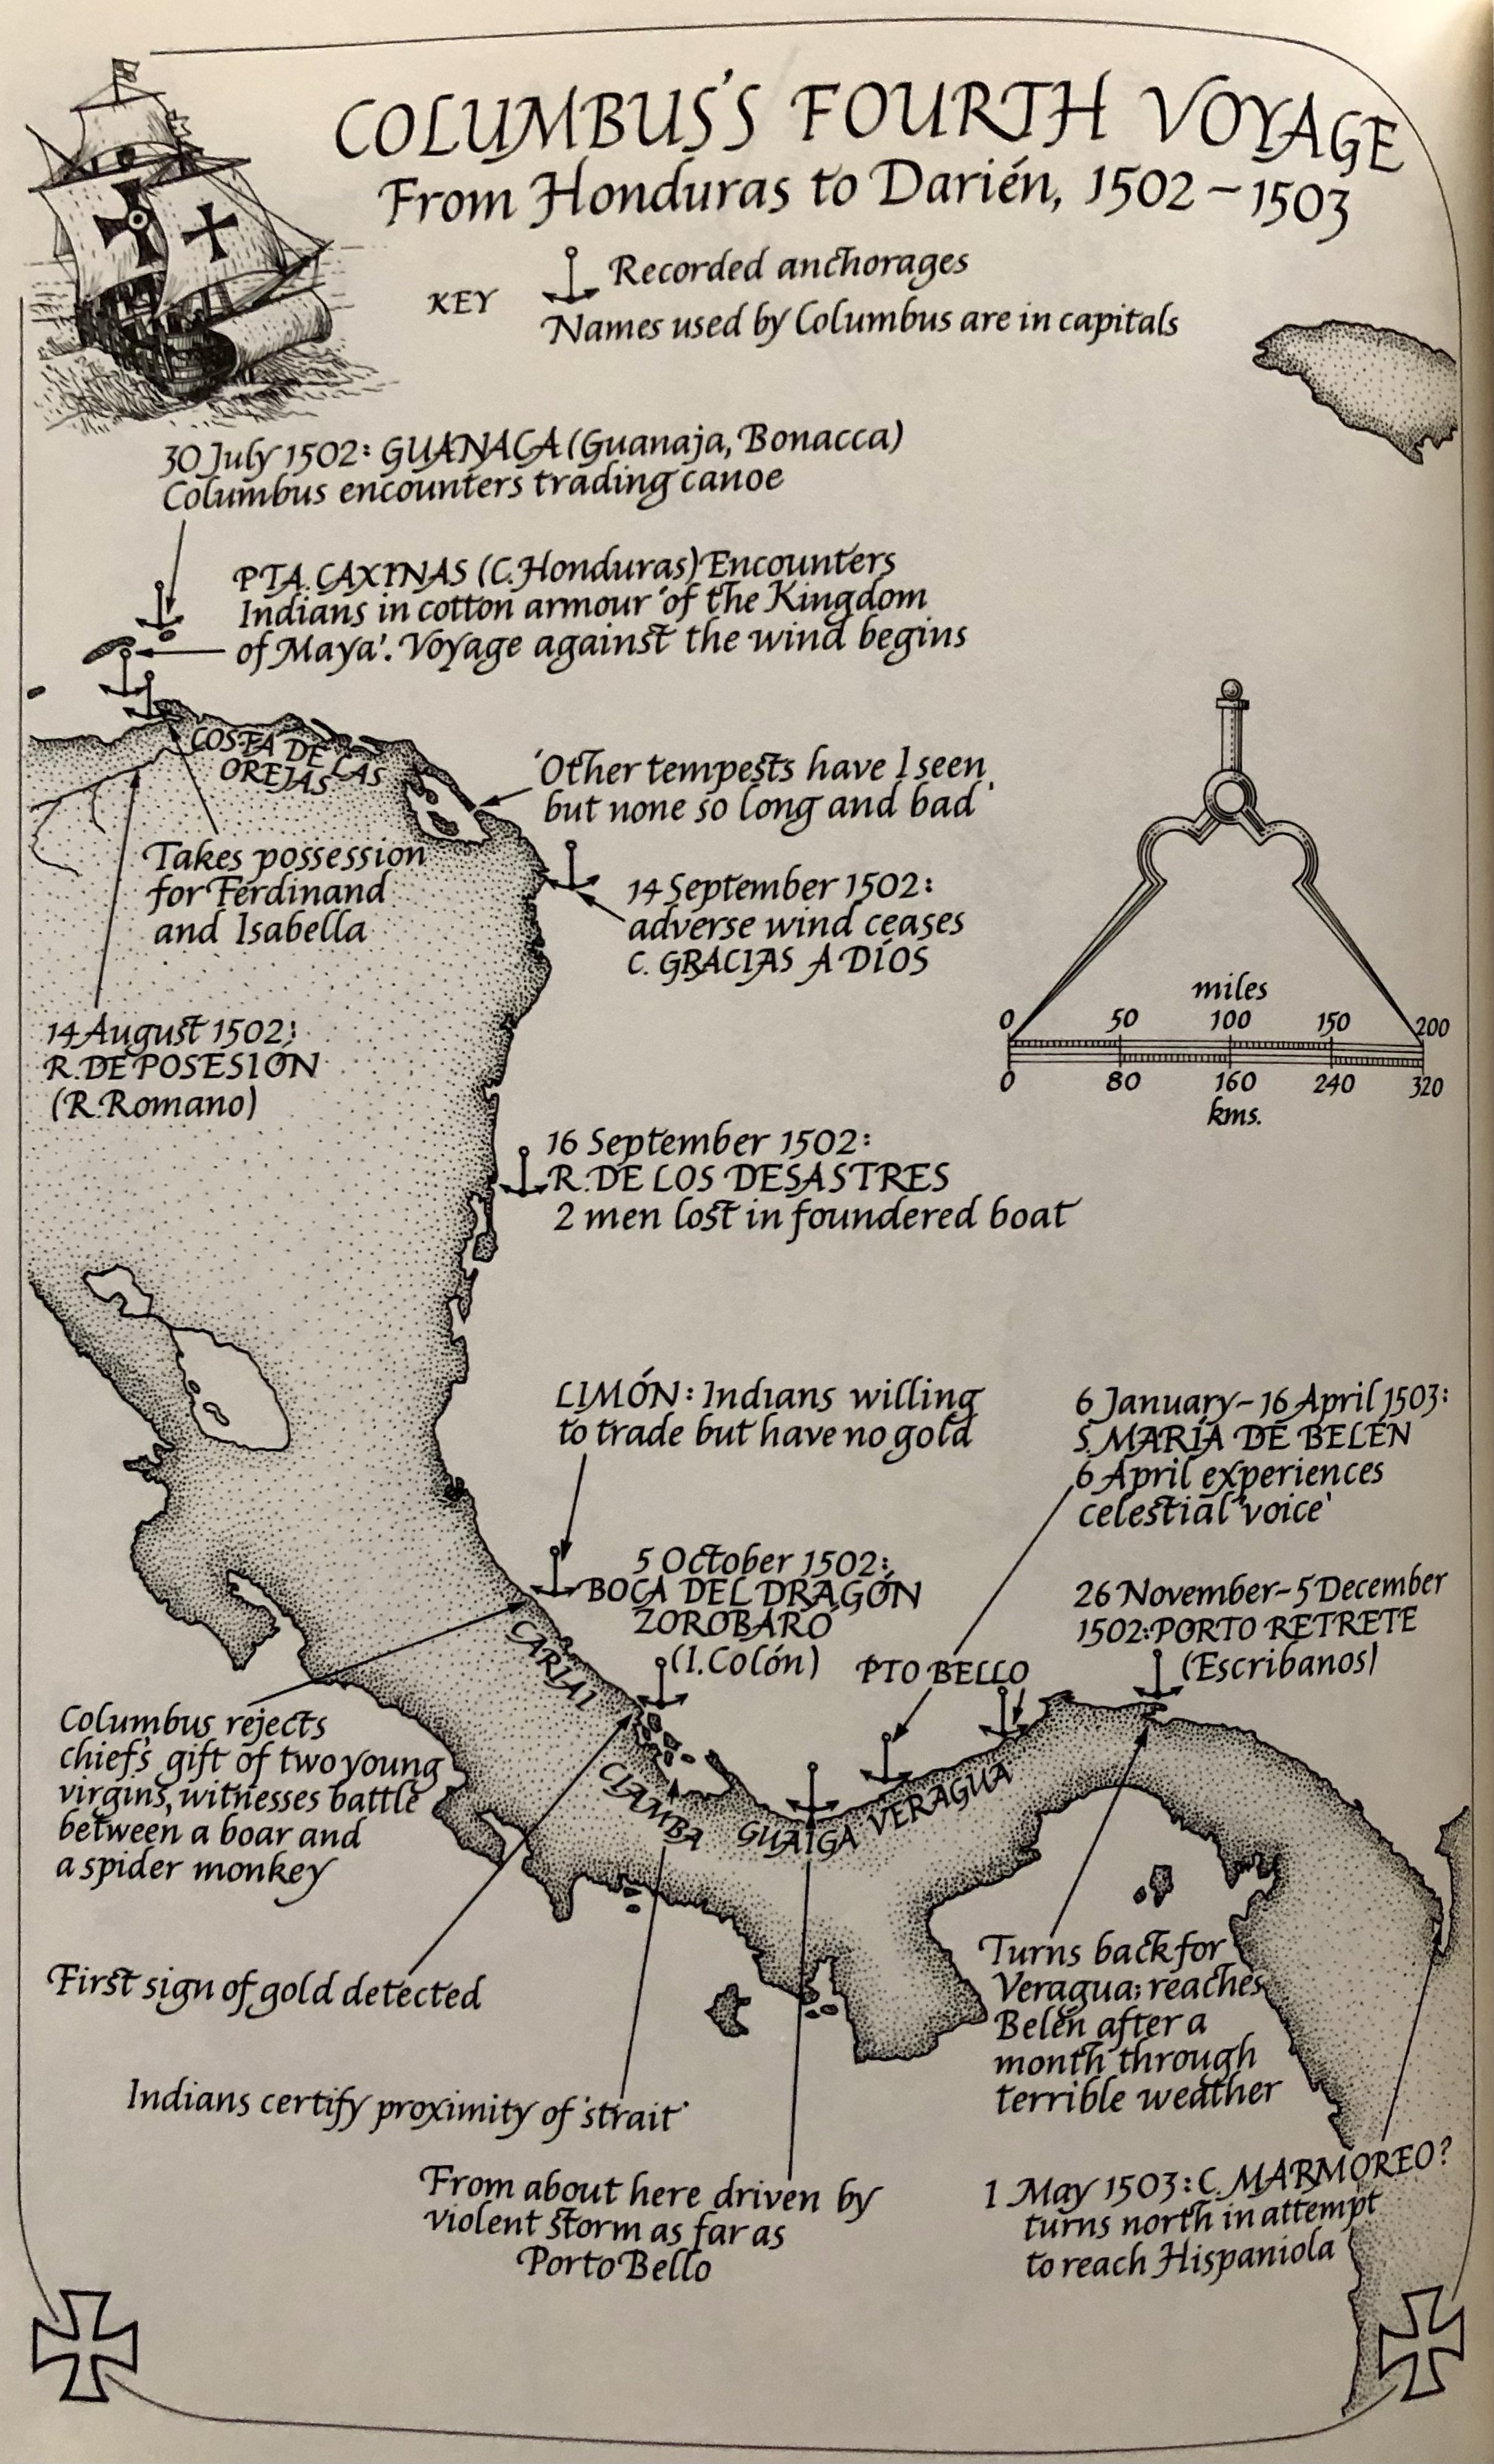 COLUMBUS'S FOURTH VOYAGE
From Honduras to Darién, 1502–1503
KEY
Recorded anchorages
Names used by Columbus are in capitals
30 July 1502: GUANACA (Guanaja, Bonacca)
Columbus encounters trading canoe
PTA. CAXINAS (C. Honduras) Encounters
Indians in cotton armour 'of the Kingdom
of Maya'. Voyage against the wind begins
COSTA DE LAS
OREJAS
'Other tempests have I seen
but none so long and bad'
Takes possession
for Ferdinand
and Isabella
14 September 1502:
adverse wind ceases
C. GRACIAS A DÍOS
14 August 1502:
R. DE POSESIÓN
(R. Romano)
miles
0 50 100 150 200
0 80 160 240 320
kms.
16 September 1502:
R. DE LOS DESASTRES
2 men lost in foundered boat
LIMÓN: Indians willing
to trade but have no gold
6 January–16 April 1503:
S. MARÍA DE BELÉN
6 April experiences
celestial 'voice'
5 October 1502:
BOCA DEL DRAGÓN
ZOROBARÓ
(I. Colón)
26 November–5 December
1502: PORTO RETRETE
(Escribanos)
PTO BELLO
CARIAI
Columbus rejects
chief's gift of two young
virgins, witnesses battle
between a boar and
a spider monkey
CIAMBA
GUAIGA
VERAGUA
First sign of gold detected
Turns back for
Veragua; reaches
Belén after a
month through
terrible weather
Indians certify proximity of 'strait'
From about here driven by
violent storm as far as
Porto Bello
1 May 1503: C. MARMOREO?
turns north in attempt
to reach Hispaniola